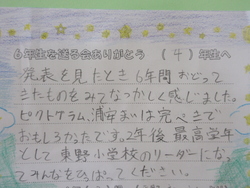 6年生を送る会ありがとう (4)年生へ
発表を見たとき6年間おどって
きたものをみてなつかしく感じました。
ピクトグラム、浦安まいは完ぺきで
おもしろかったです。2年後最高学年
として東野小学校のリーダーになっ
てみんなをひっぱってください。